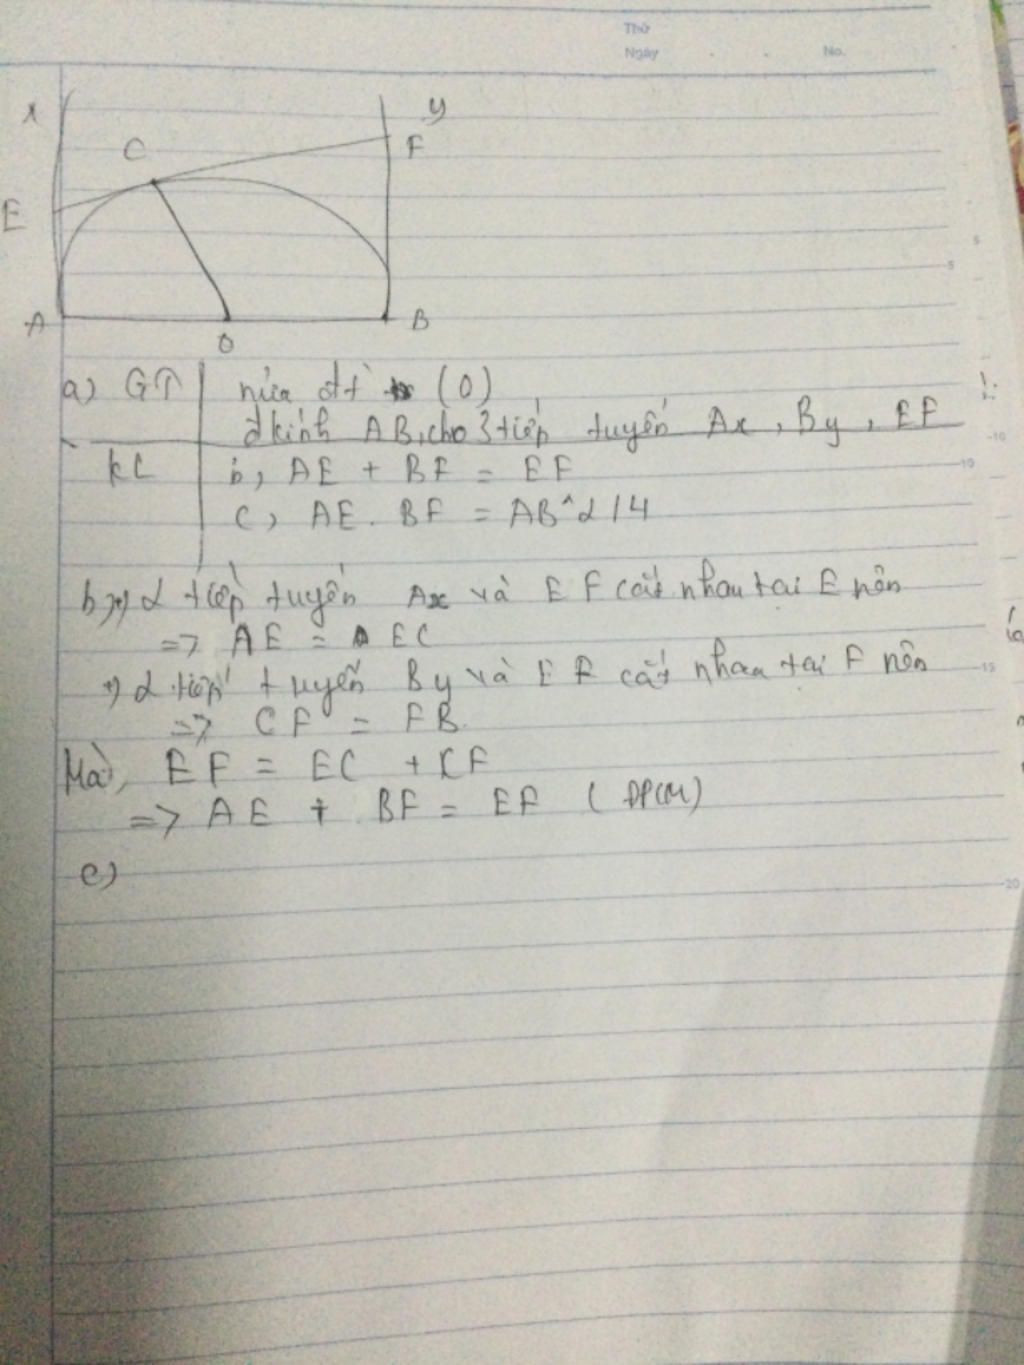 Thứ
Ngày No.
x y
C F
E
A O B
a) GT nửa đt (O)
đkính AB, cho 3 tiếp tuyến Ax, By, EF
KL b, AE + BF = EF
c, AE. BF = AB^2/4
b) +) 2 tiếp tuyến Ax và EF cắt nhau tại E nên
=> AE = EC
+) 2 tiếp tuyến By và EF cắt nhau tại F nên
=> CF = FB
Mà, EF = EC + CF
=> AE + BF = EF (ĐPCM)
c)
5
10
15
20